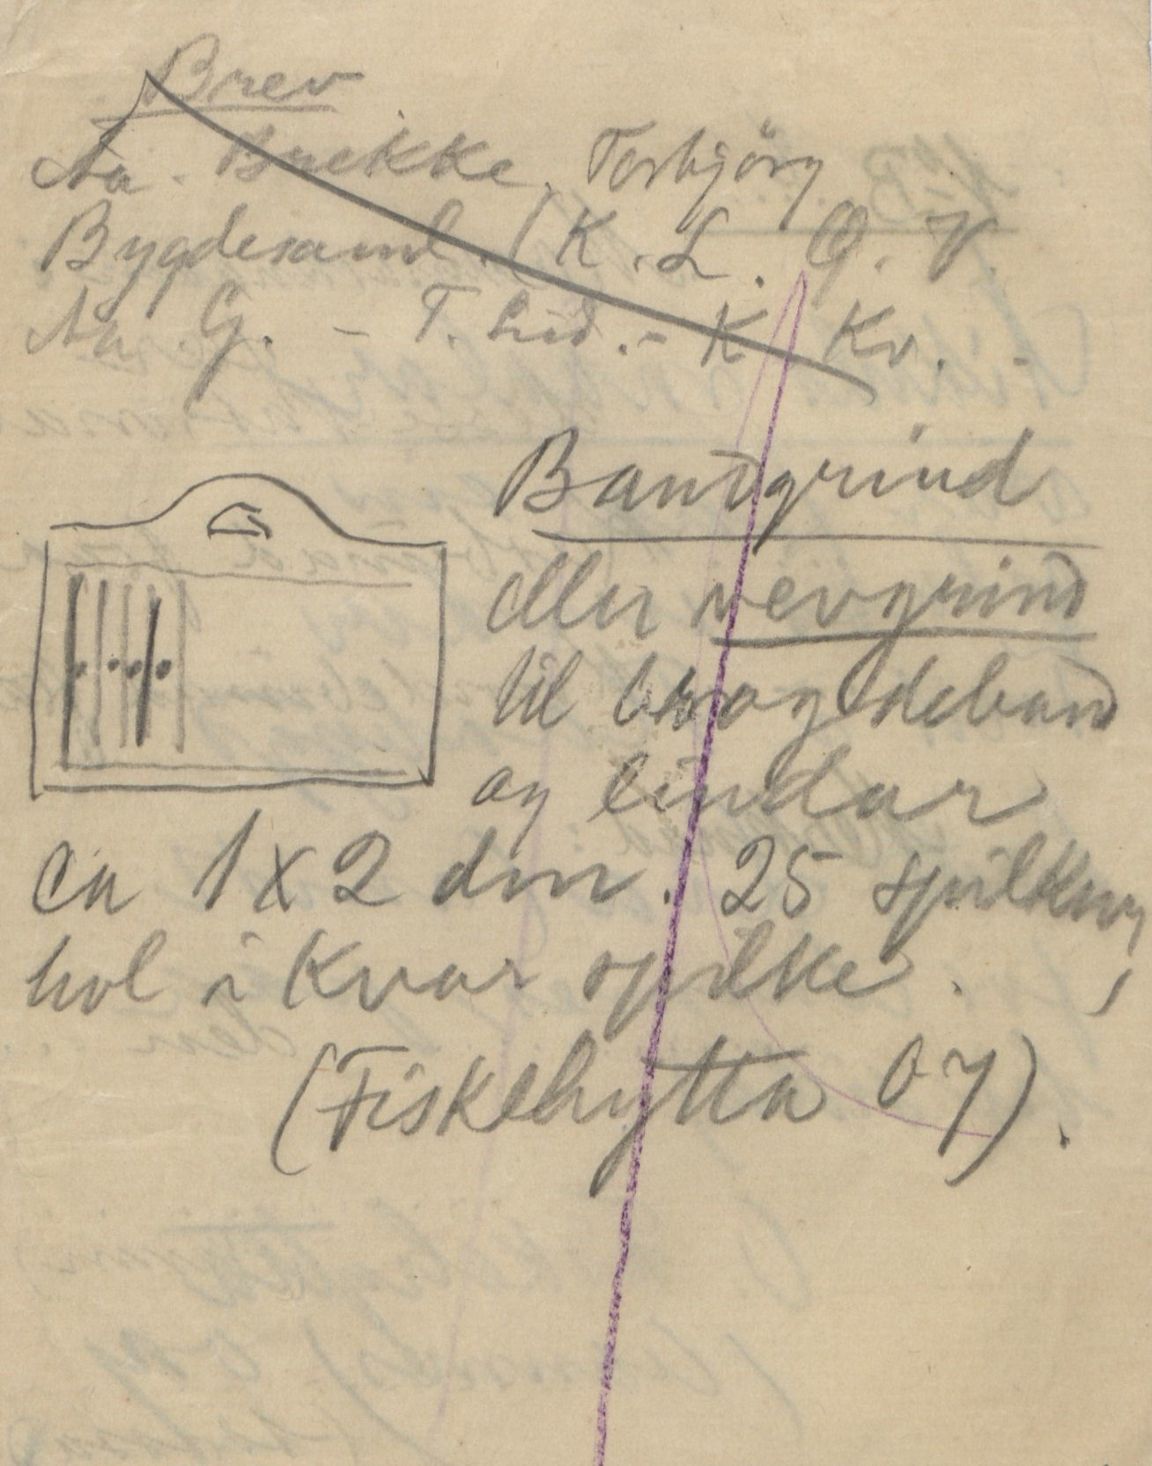 Brev
Aa. Brekke, Torbjörg
Bygdesaml. (K. L. O. V.
Aa G. - T. Lid. - K Kv.
Bandgrind
eller vevgrind
til brogdeband
og lindar
ca 1 x 2 dm. 25 spilkur,
hol i kvar spilke.
(Fiskehytta O J).